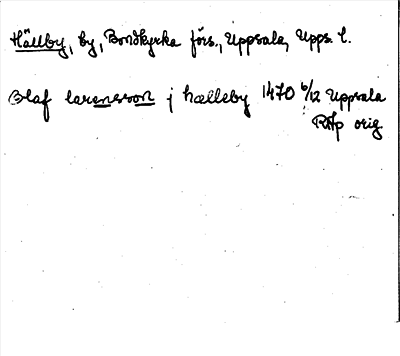 Hällby, by, Bondkyrka förs., Uppsala, Upps. l.
Olaf larensson j hælleby 1470 6/12 Uppsala
RAp orig